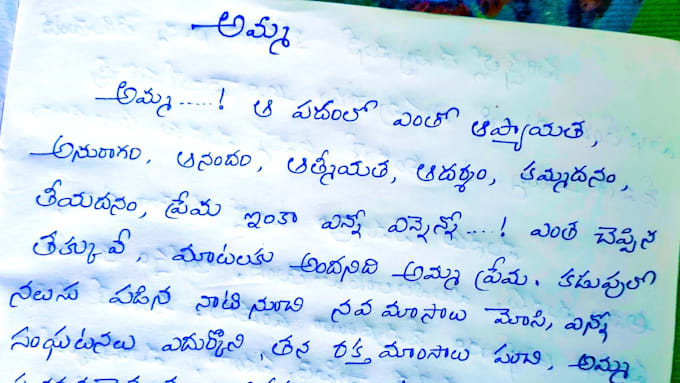 అమ్మ
అమ్మ.....! ఆ పదంలో ఎంతో ఆప్యాయత,
అనురాగం, ఆనందం, ఆత్మీయత, ఆదర్శం, కమ్మదనం,
తీయదనం, ప్రేమ ఇంకా ఎన్నో ఎన్నెన్నో....! ఎంత చెప్పిన
తక్కువే, మాటలకు అందనిది అమ్మ ప్రేమ. కడుపులో
నలుసు పడిన నాటి నుంచి నవ మాసాలు మోసి, ఎన్నో
సంఘటనలు ఎదుర్కొని, తన రక్త మాంసాలు పంచి, అమ్మ